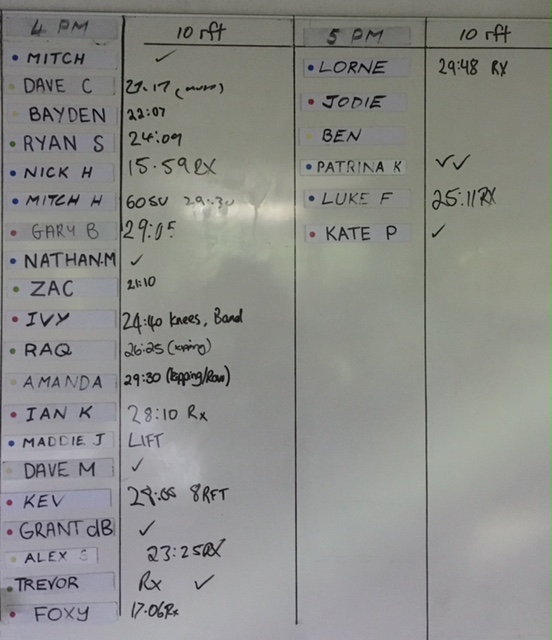 4 PM 10 rft
MITCH ✓
DAVE C
BAYDEN 22:07
RYAN S 24:09
NICK H 15.59 RX
MITCH H 60SU 29:30
GARY B 29:05
NATHAN.M ✓
ZAC 21:10
IVY 24:40 Knees, Band
RAQ 26:25
AMANDA 29:30
IAN K 28:10 Rx
MADDIE J LIFT
DAVE M ✓
KEV 8RFT
GRANT dB ✓
ALEX S 23:25RX
TREVOR Rx ✓
FOXY 17.06Rx
5 PM 10 rft
LORNE 29:48 RX
JODIE
BEN
PATRINA K ✓✓
LUKE F 25:11RX
KATE P ✓